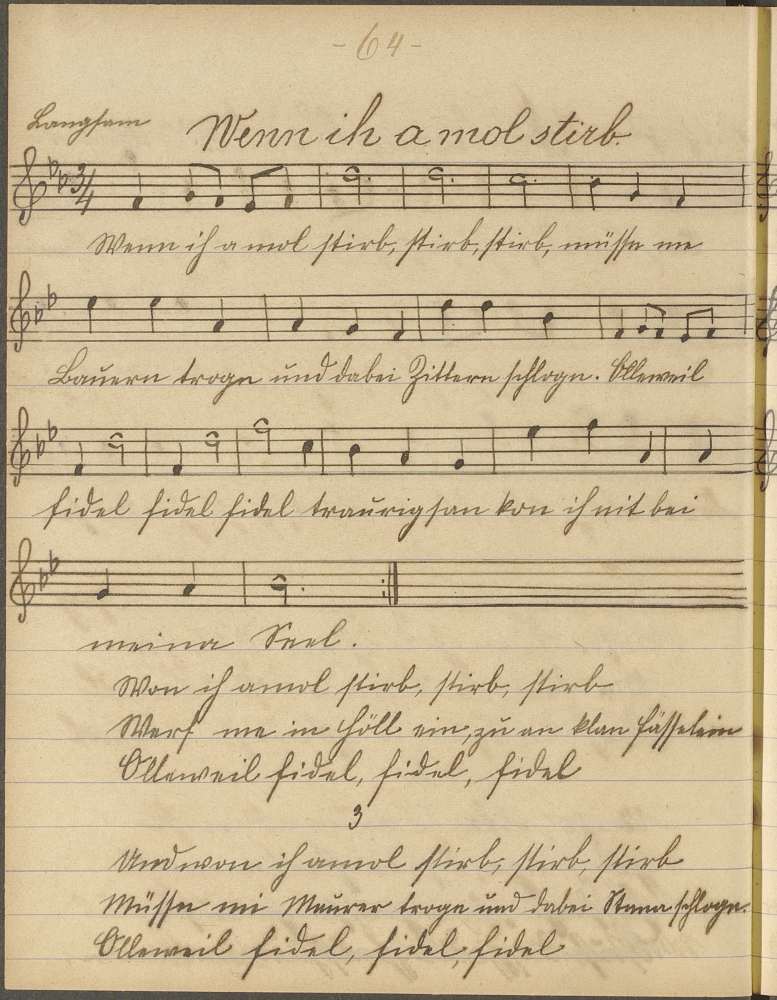 - 64 -
Langsam
Wenn ih a mol stirb.
3/4
Wenn ih a mol stirb, stirb, stirb, müssn me
Bauern trogn und dabei Zittern schlogn. Olleweil
fidel fidel fidel traurig san kon ih nit bei
meina Seel.
Won ih amol stirb, stirb, stirb
Werf me in Höll ein, zu an klan Fässelein
Olleweil fidel, fidel, fidel
3
Und won ih amol stirb, stirb, stirb
Müssn mi Maurer trogn und dabei Stana schlogn.
Olleweil fidel, fidel, fidel